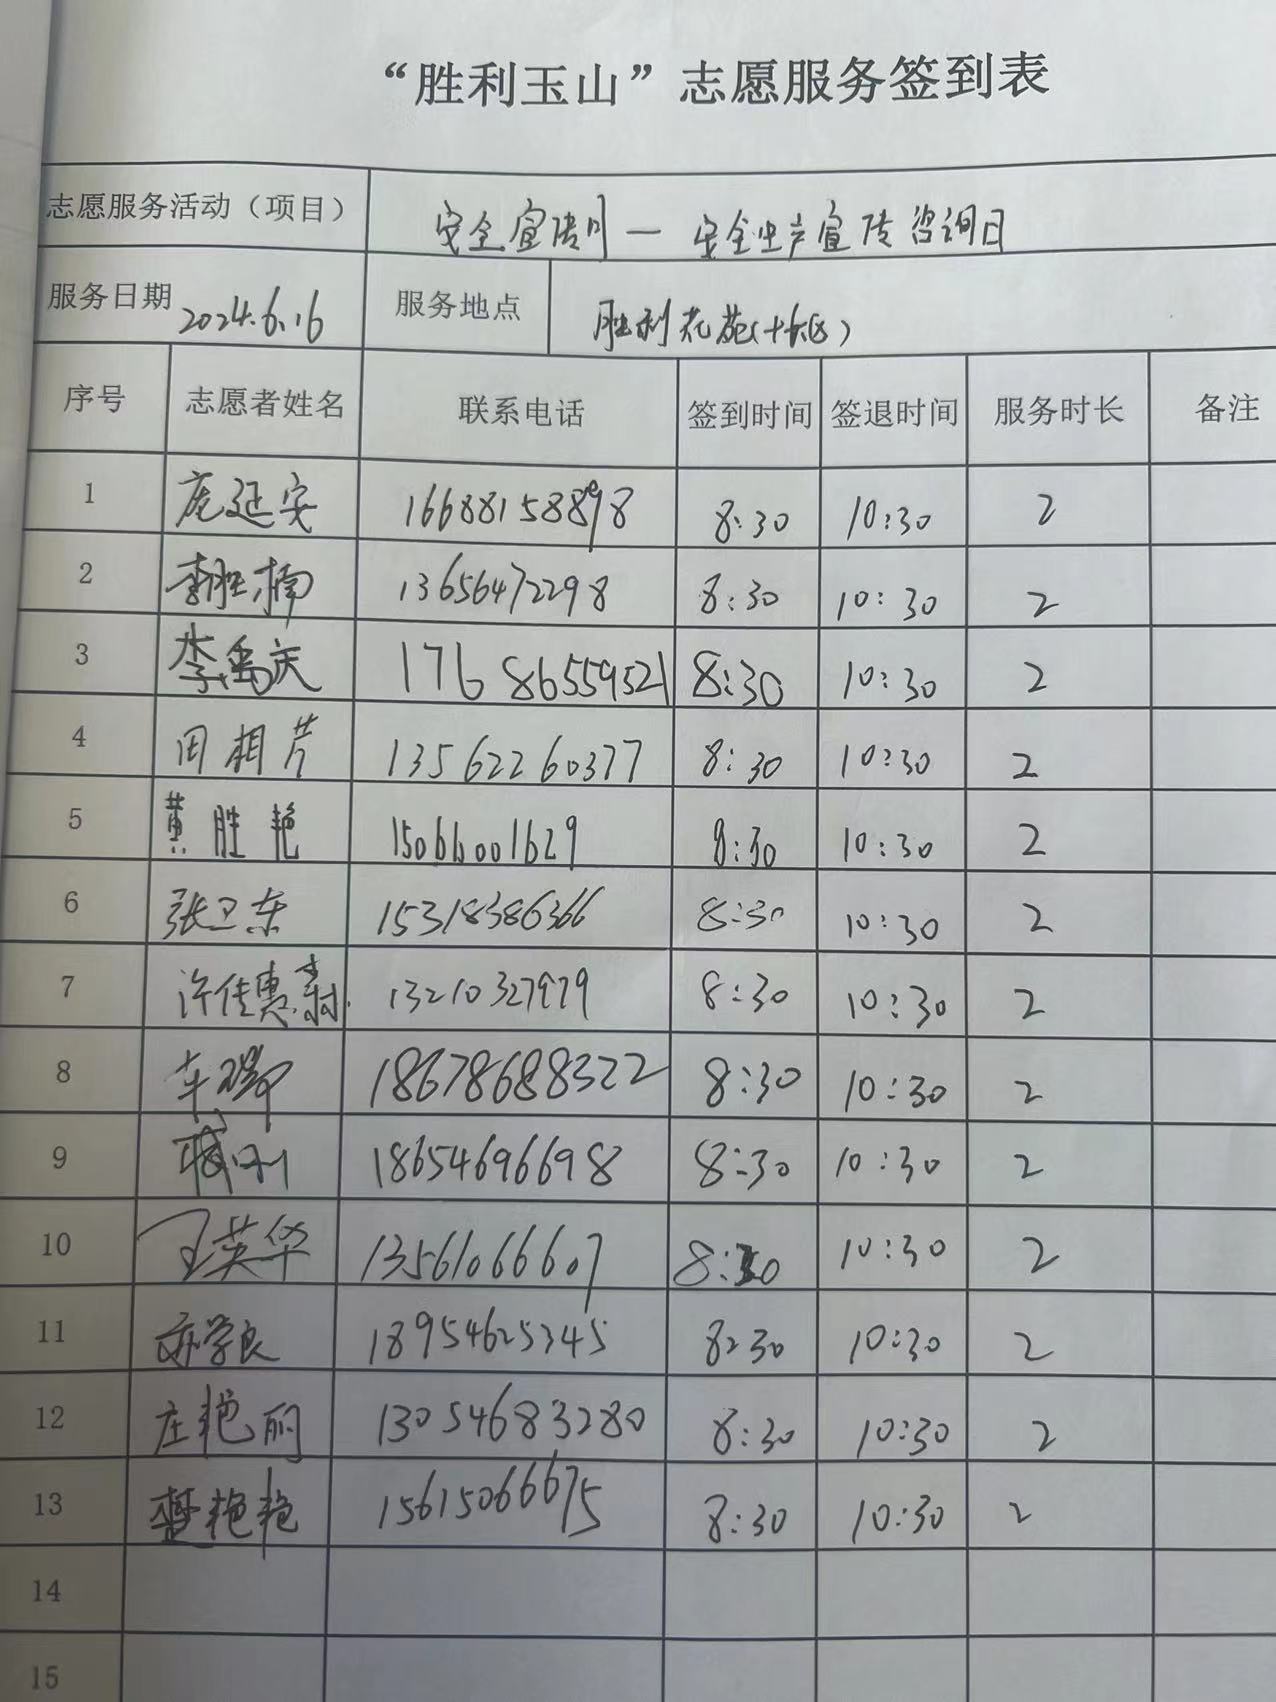 “胜利玉山”志愿服务签到表
志愿服务活动（项目） 安全宣传月— 安全生产宣传咨询日
服务日期 2024.6.16 服务地点 胜利花苑
序号 志愿者姓名 联系电话 签到时间 签退时间 服务时长 备注
1 庞延安 8:30 10:30 2
2 李胜楠 13656472298 8:30 10:30 2
3 李禹庆 17686559521 8:30 10:30 2
4 田相芹 13562260377 8:30 10:30 2
5 黄胜艳 15066001629 8:30 10:30 2
6 张卫东 15318386366 8:30 10:30 2
7 许佳惠 13210327979 8:30 10:30 2
8 车瑞 18678688322 8:30 10:30 2
9 18654696698 8:30 10:30 2
10 王英华 13561066607 8:30 10:30 2
11 学良 18954625345 8:30 10:30 2
12 庄艳丽 13054683280 8:30 10:30 2
13 艳艳 15615066675 8:30 10:30 2
14
15